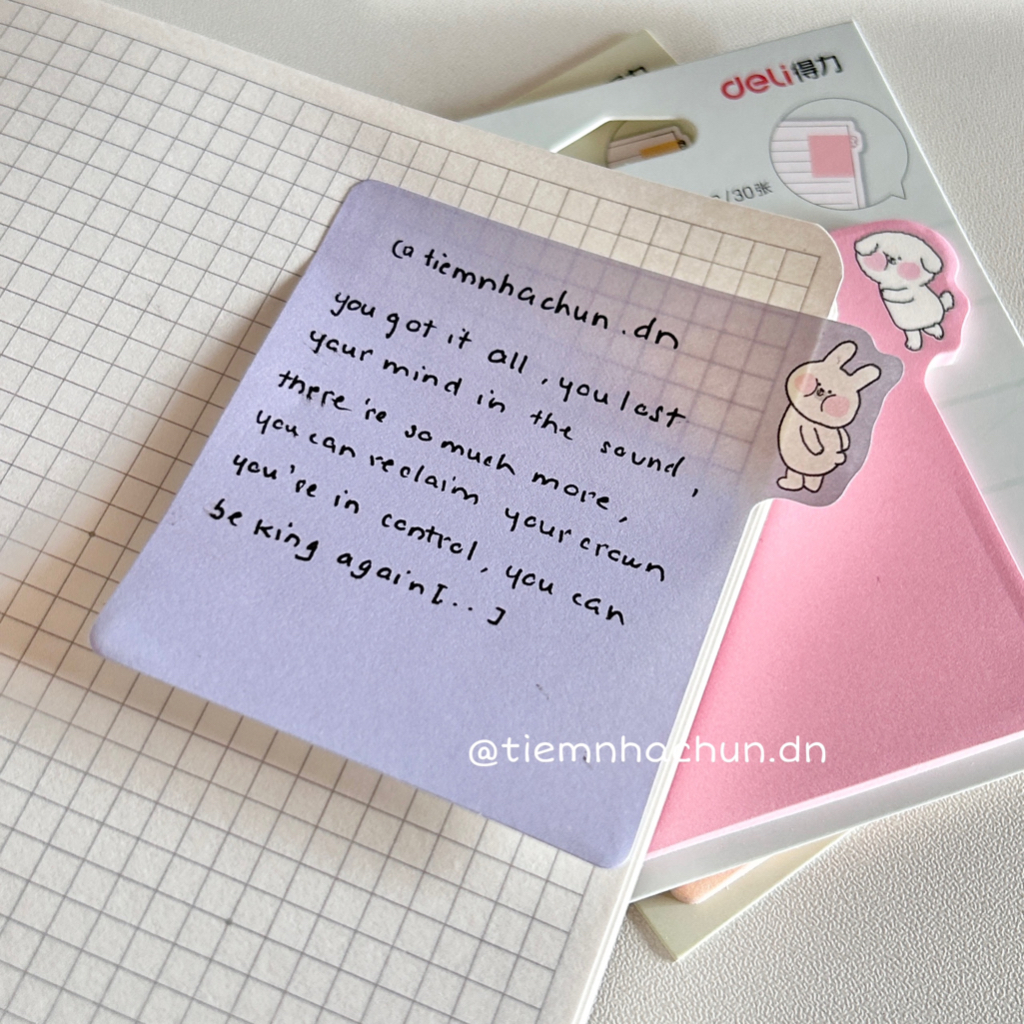 deli得力
/30张
@tiemnhachun.dn
you got it all, you lost
your mind in the sound,
there're so much more,
you can reclaim your crown
you're in control, you can
be king again[..]
@tiemnhachun.dn